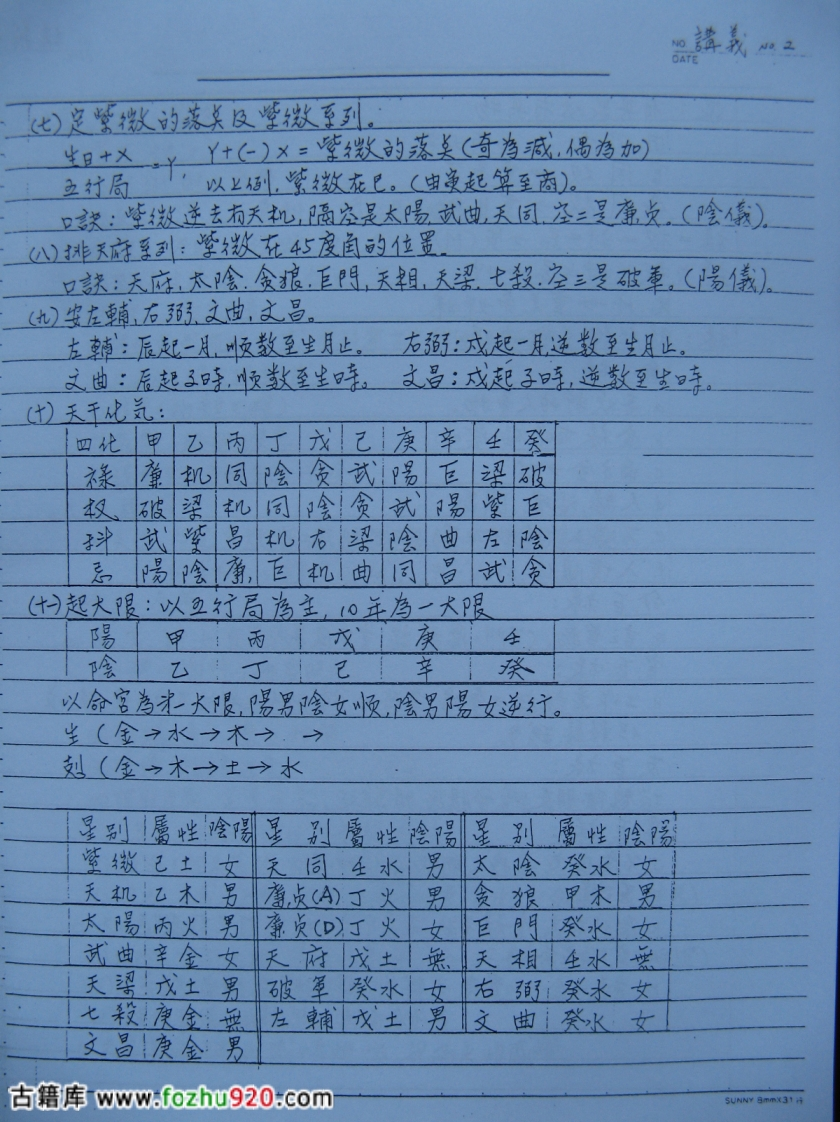 NO. 講義 NO.2
DATE
(七)定紫微的落点及紫微系列。
生日+X/五行局=Y, Y+(-)X=紫微的落点(奇為減,偶為加)
以上例,紫微在巳。(由寅起算至商)。
口訣:紫微逆去有天机,隔空是太陽,武曲,天同,空二是廉贞。(陰儀)。
(八)排天府系列:紫微在45度角的位置。
口訣:天府,太陰,貪狼,巨門,天相,天梁,七殺,空三是破軍。(陽儀)。
(九)安左輔,右弼,文曲,文昌。
左輔:辰起一月,順数至生月止。 右弼:戍起一月,逆数至生月止。
文曲:辰起子時,順数至生時。 文昌:戍起子時,逆数至生時。
(十)天干化気:
四化 甲 乙 丙 丁 戊 己 庚 辛 壬 癸
祿 廉 机 同 陰 貪 武 陽 巨 梁 破
权 破 梁 机 同 陰 貪 武 陽 紫 巨
科 武 紫 昌 机 右 梁 陰 曲 左 陰
忌 陽 陰 廉 巨 机 曲 同 昌 武 貪
(十一)起大限:以五行局為主,10年為一大限
陽 甲 丙 戊 庚 壬
陰 乙 丁 己 辛 癸
以命宮為第一大限,陽男陰女順,陰男陽女逆行。
生(金→水→木→ →
剋(金→木→土→水
星别 屬性 陰陽 星别 屬性 陰陽 星别 屬性 陰陽
紫微 己土 女 天同 壬水 男 太陰 癸水 女
天机 乙木 男 廉贞(A) 丁火 男 貪狼 甲木 男
太陽 丙火 男 廉贞(D) 丁火 女 巨門 癸水 女
武曲 辛金 女 天府 戊土 無 天相 壬水 無
天梁 戊土 男 破軍 癸水 女 右弼 癸水 女
七殺 庚金 無 左輔 戊土 男 文曲 癸水 女
文昌 庚金 男
古籍库 www.fozhu920.com
SUNNY 9mmX31行